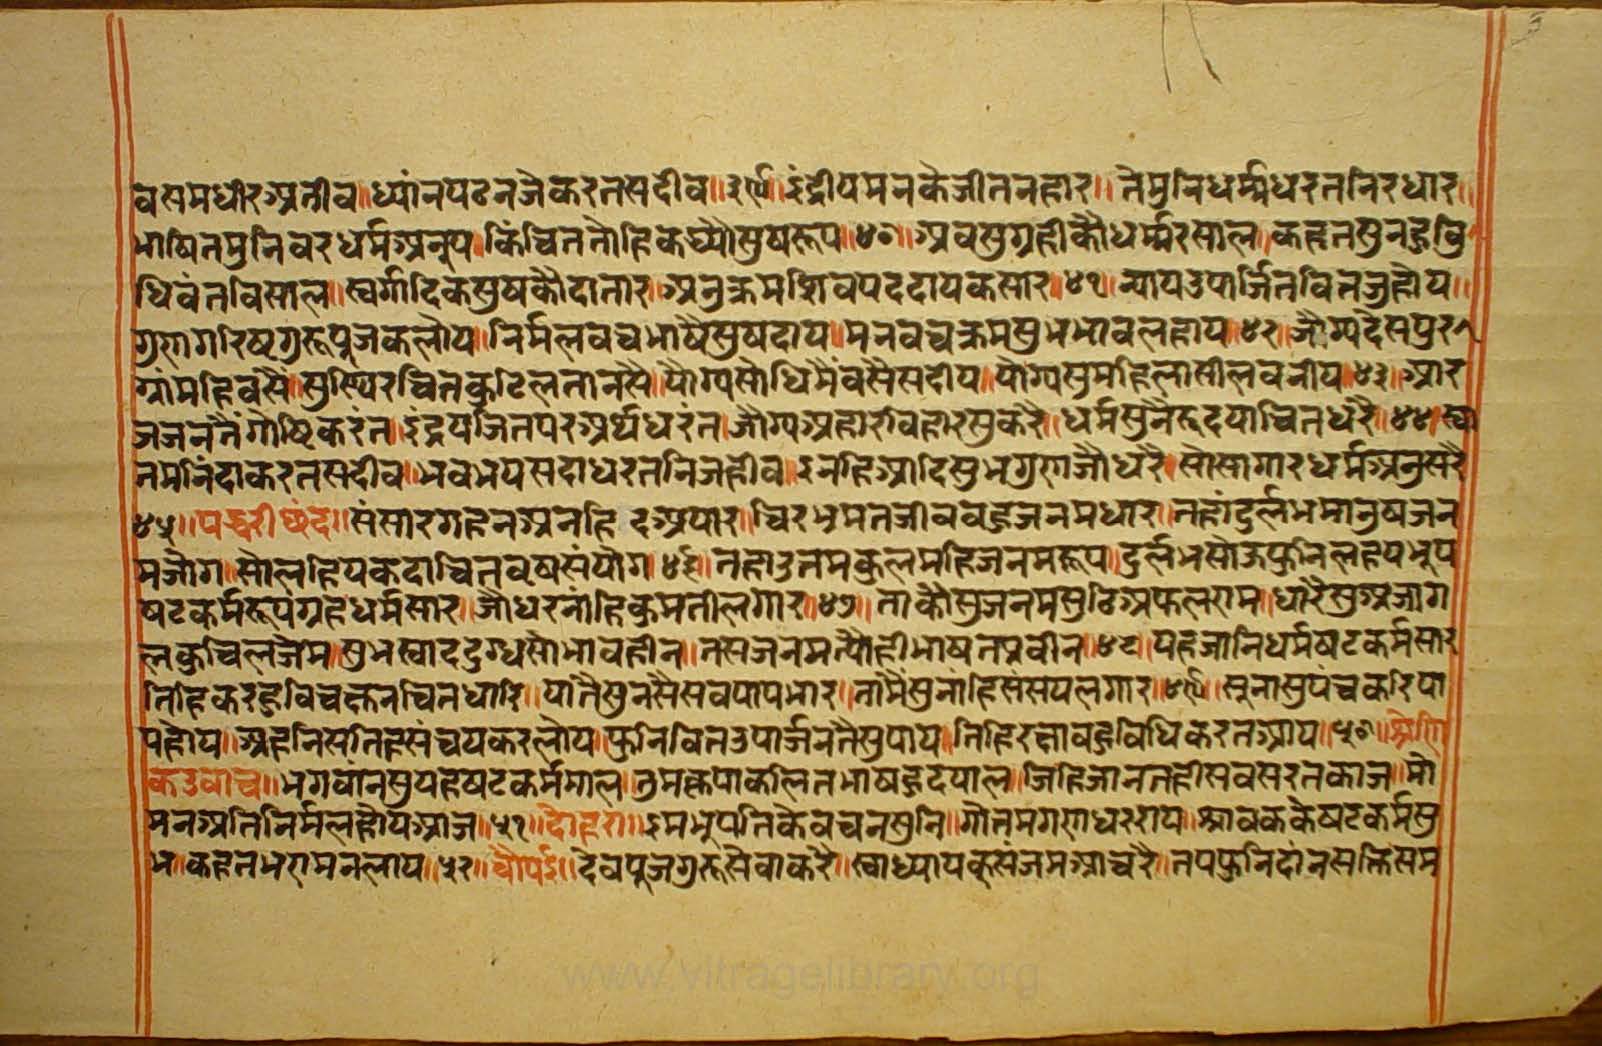 वसमधीरअतीव॥ध्यांनपठनजेकरतसदीव॥३९॥इंद्रीयमनकेजीतनहार॥तेमुनिधर्म्मधरतनिरधार॥
भाषितमुनिवरधर्मअनूप॥किंचिततोहिकह्यौसुषरूप॥४०॥अवसुग्रहीकौधर्म्मरसाल॥कहतसुनहुवि
धिवंतविसाल॥स्वर्गादिकसुषकौदातार॥अनुक्रमशिवपददायकसार॥४१॥न्यायउपार्जितवितजुहोय॥
गुरुागरिष्टगुरूपूजकलोय॥निर्मलवचभाषैसुषदाय॥मनवचक्रमसुभभावलहाय॥४२॥जोग्यदेसपुर
ग्रांमहिवसै॥सुस्थिरचितकुटिलतानसै॥योग्यसोधिमैंवसैसदीय॥योग्यसुमहिलासीलवतीय॥४३॥आर
जजनतैंगोष्टिकरंत॥इंद्रयजितपरअर्थधरंत॥जोग्यअहारविहारसुकरै॥धर्मसुनैरुदयाचितधरै॥४४॥स्वा
तमनिंदाकरतसदीव॥भवभयसदाधरतनिजहीव॥इनहिआदिसुभगुराजोधरै॥सोसागारधर्मअनुसरै
४५॥पद्धरीछंद॥संसारगहनअनहि दअपार॥चिरभ्रमतजीववहुजनमधार॥तहांदुर्लभमानुषजन
मजोग॥सोलहियकदाचितवृषसंयोग॥४६॥तहांउतमकुलमहिजनमरूप॥दुर्लभसोऊफुनिलहयभूप
षटकर्मरूपग्रहधर्मसार॥जोधरनांहिकुमतीलगार॥४७॥ताकौसुजनमसुठिअफलराम॥धारैसुअजाग
लकुचिलजेम॥सुभस्वाददुग्धसोभावहीन॥तसजनमत्योंहीभाषतप्रवीन॥४८॥यहजानिधर्मषटकर्मसार
तिहिकरहुविचक्षनचितधारि॥यातैसुनसैसवपापभार॥तामैंसुनाहिसंसयलगार॥४९॥सूनासुपंचकरिपा
पहोय॥अहनिसतिहसंचयकरलोय॥फुनिवितउपार्जनतैसुपाय॥तिहिरक्षावहुविधिकरतआय॥५०॥श्रेणि
कउवाच॥भगवांनसुयहषटकर्ममाल॥तुमकृपाकलितभाषहुदयाल॥जिहिजानतहीसवसरतकाज॥मो
मनअतिनिर्मलहोयआज॥५१॥दोहरा॥इमभूपतिकैवचनसुनि॥गौतमगराधररराय॥श्रावककेषटकर्मसु
भ॥कहतभरामनलाय॥५२॥चौपई॥देवपूजगुरूसेवाकरै॥स्वाध्यायकूसंजमआचरै॥तपफुनिदांनसक्तिसम
www.vitragelibrary.org